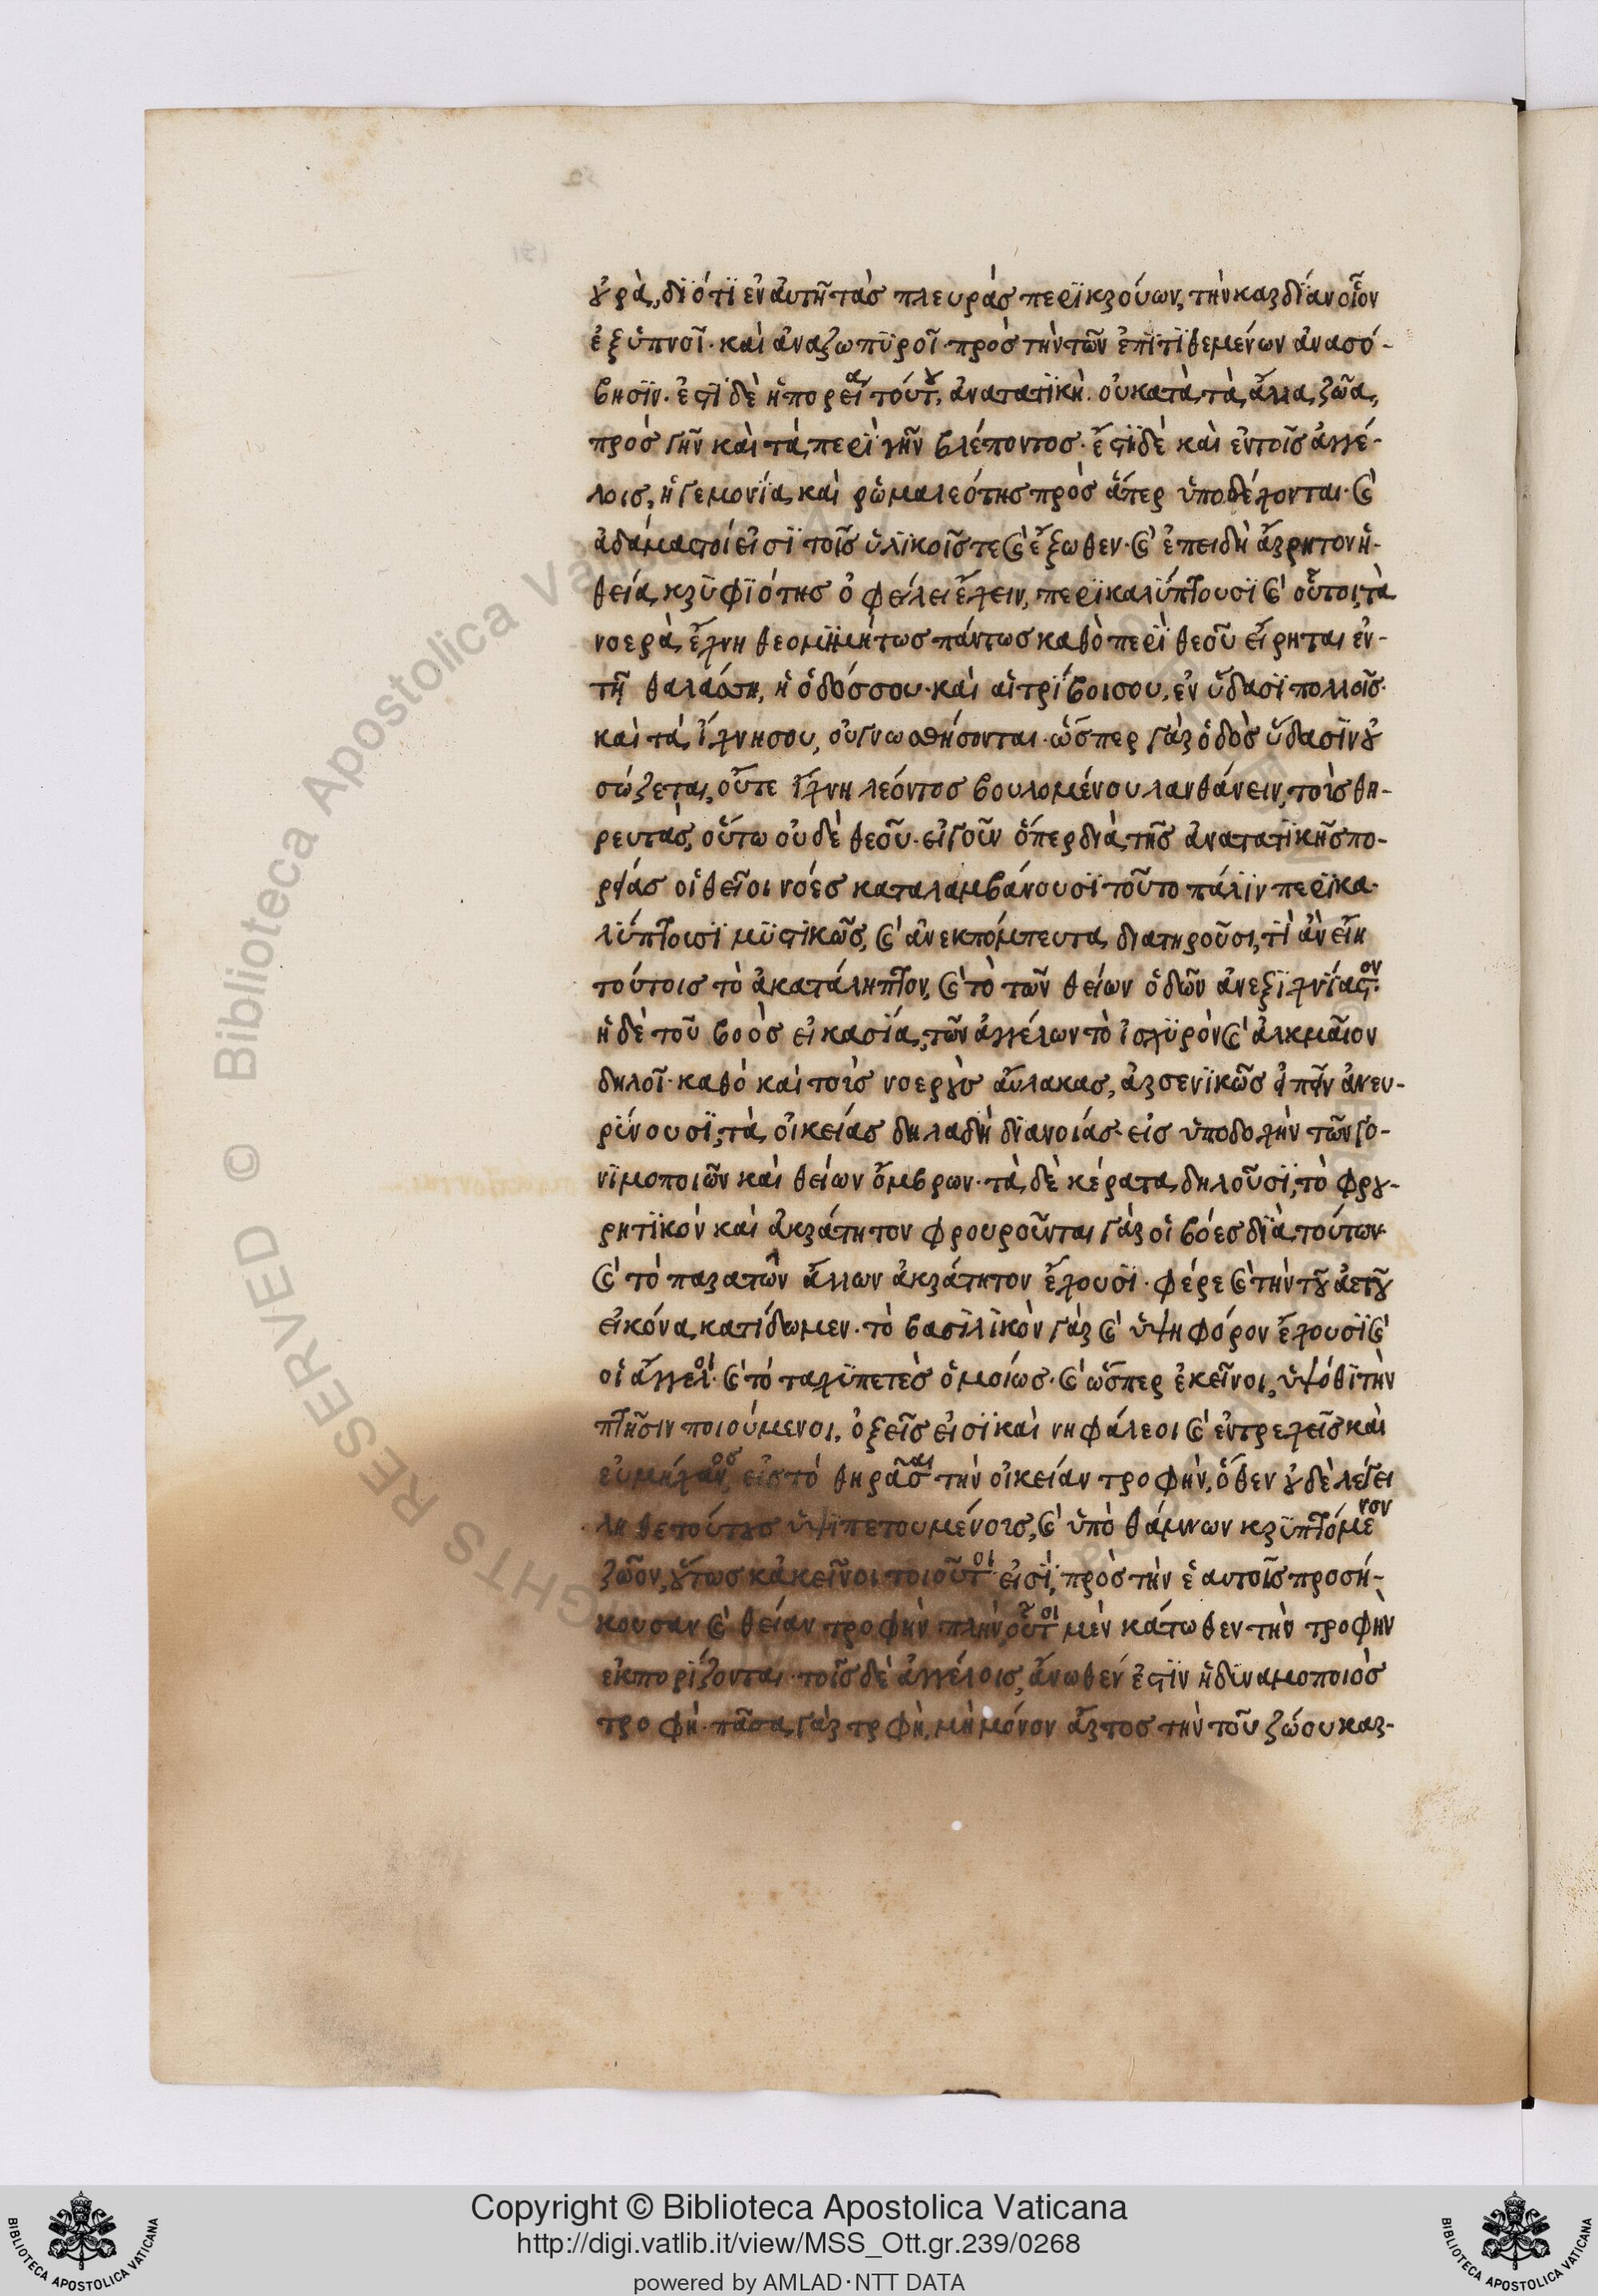 οὐρὰ, δϊότϊ ἐν ἀυτῆ τὰσ πλευρὰσ περϊκρούων, τὴν καρδΐαν οἷον
ἐξὑπνοῖ· καὶ ἀναζωπϋροῖ· πρὸσ τὴν τῶν ἐπϊτϊθεμένων ἀνασό-
βησϊν· ἐστὶ δὲ ἡ πορεία τούτου, ἀνατατϊκὴ. οὐ κατὰ τὰ ἄλλα ζῶα,
πρὸσ γῆν καὶ τὰ περὶ γῆν βλέποντοσ· ἔστϊ δὲ καὶ ἐν τοῖσ ἀγγέ-
λοισ, ἡγεμονία, καὶ ῥὡμαλεότησ πρὸσ ἅπερ ὑποδέχονται· καὶ
ἀδάμαστοί εἰσϊ τοῖσ ὑλϊκοῖσ τε καὶ ἔξωθεν· καὶ ἐπειδὴ ἄρρητον ἡ
θεία κρϋφϊότησ ὀφείλει ἔχειν, περϊκαλΰπτουσϊ καὶ οὗτοι, τὰ
νοερὰ ἴχνη θεομϊμήτωσ πάντωσ καθὸ περὶ θεοῦ εἴρηται ἐν
τῆ θαλάσση, ἡ ὁδόσ σου· καὶ αἱ τρίβοι σου, ἐν ὕδασϊ πολλοῖσ·
καὶ τὰ ἴχνη σου, οὐ γνωσθήσονται· ὥσπερ γὰρ ὁδὸσ ὕδασϊν οὐ
σώζεται, οὔτε ἴχνη λεόντοσ βουλομένου λανθάνειν, τοὶσ θη-
ρευτὰσ, οὕτω οὐδὲ θεοῦ· εἰ γοῦν ὅπερ διὰ τῆσ ἀνατατϊκῆσ πο-
ρείασ οἱ θεῖοι νόεσ καταλαμβάνουσϊ τοῦτο πάλϊν περϊκα-
λΰπτοισϊ μϋστϊκῶσ, καὶ ἀνεκπόμπευτα διατηροῦσι, τὶ ἂν εἴη
τούτοισ τὸ ἀκατάληπτον, καὶ τὸ τῶν θείων ὁδῶν ἀνεξϊχνίαστον·
ἡ δὲ τοῦ βοὸσ εἰκασία, τῶν ἀγγέλων τὸ ἰσχϋρὸν καὶ ἀλκμαῖον
δηλοῖ· καθὸ καὶ τοὶσ νοεροὺσ αὔλακασ, ἀρσενϊκῶσ εἰπεῖν ἀνευ-
ρύνουσϊ, τὰ οἰκείασ δηλαδὴ δϊανοιάσ· εἰσ ὑποδοχὴν τῶν γο-
νϊμοποιῶν καὶ θείων ὄμβρων· τὰ δὲ κέρατα δηλοῦσϊ, τὸ φρου-
ρητϊκὸν καὶ ἀκράτητον φρουροῦνται γὰρ οἱ βόεσ δϊὰ τούτων·
καὶ τὸ παρα τῶν ἄλλων ἀκράτητον ἔχουσϊ· φέρε καὶ τὴν τοῦ ἀετοῦ
εἰκόνα κατίδωμεν· τὸ βασϊλϊκὸν γὰρ καὶ ὑψηφόρον ἔχουσϊ καὶ
οἱ ἄγγελοι· καὶ τὸ ταχϋπετὲσ ὁμοίωσ· καὶ ὥσπερ ἐκεῖνοι, ὑψόθϊ τὴν
πτῆσιν ποιούμενοι, ὀξεῖσ εἰσϊ καὶ νηφάλεοι καὶ ἐντρεχεῖσ καὶ
εὐμήχανοσ, εἰσ τὸ θηρᾶσαι τὴν οἰκείαν τροφὴν, ὅθεν οὐδὲ λέγει
λήθε τούτουσ ὑψϊπετουμένοισ, καὶ ὑπὸ θάμνων κρϋπτόμενον
ζῶον, οὕτωσ κἀκεῖνοι τοιοῦτοι εἰσὶ, πρὸσ τὴν ἑαυτοῖσ προσή-
κουσαν καὶ θείαν τροφὴν πλὴν, οὗτοι μὲν κάτωθεν τὴν τροφὴν
ἐκπορίζονται· τοῖσ δὲ ἀγγέλοισ, ἄνωθέν ἐστϊν ἡ δϋναμοποιὸσ
τροφὴ· πᾶσα γὰρ τρφὴ, μὴ μόνον ἄρτοσ τὴν τοῦ ζώου καρ-
Copyright © Biblioteca Apostolica Vaticana
http://digi.vatlib.it/view/MSS_Ott.gr.239/0268
powered by AMLAD·NTT DATA
BIBLIOTECA APOSTOLICA VATICANA
BIBLIOTECA APOSTOLICA VATICANA